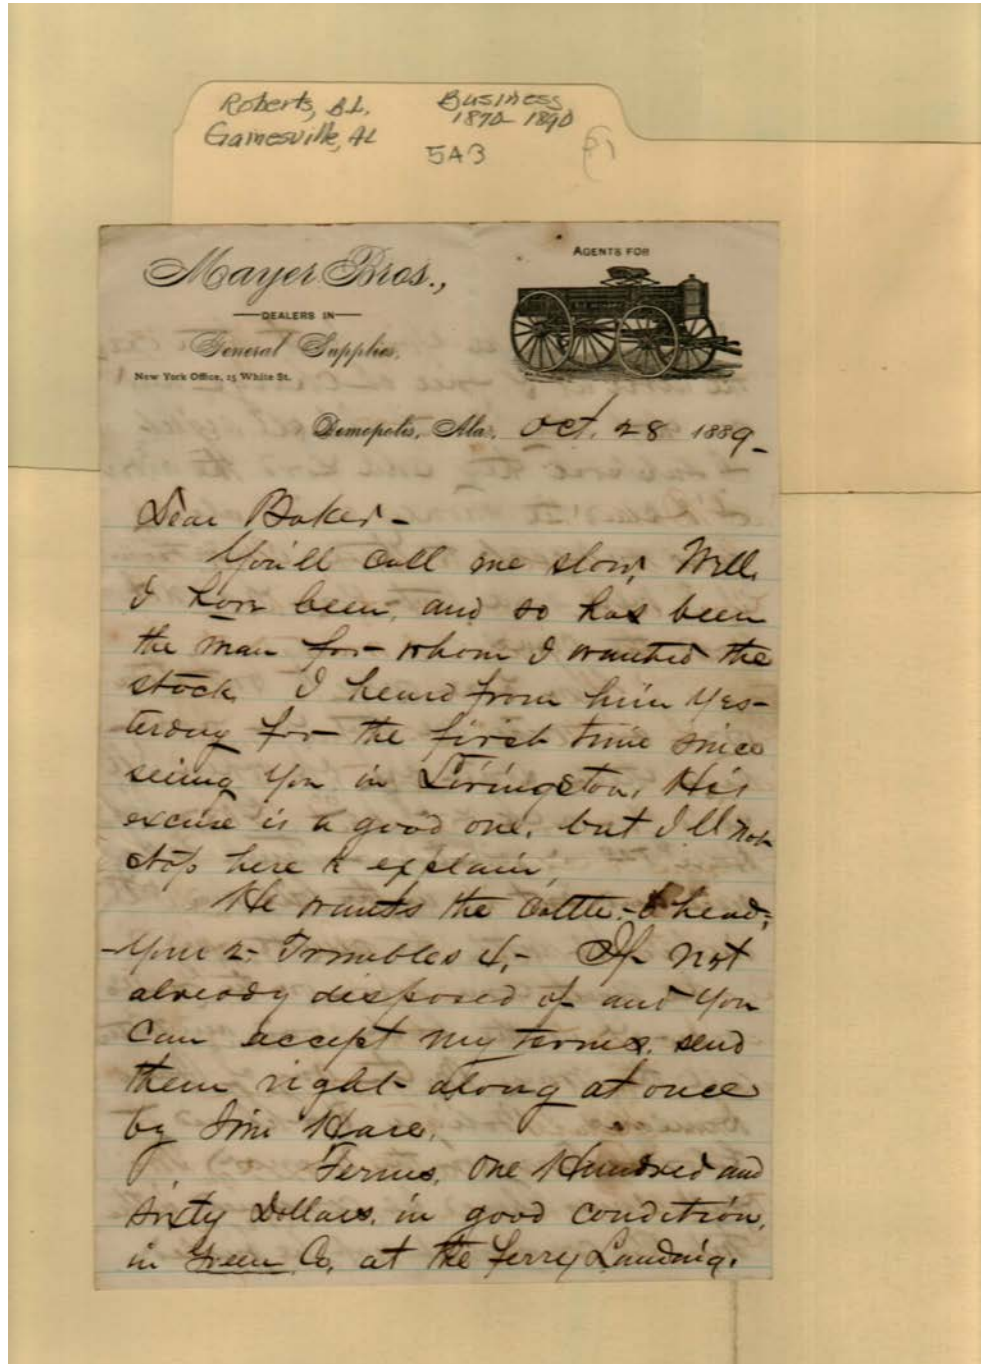 Roberts, B.L. Business
Gainesville, AL 1870-1890
5A3
Mayer Bros.,
AGENTS FOR
DEALERS IN
General Supplies,
New York Office, 15 White St.
Demopolis, Ala., Oct. 28 1889-
Dear Baker-
You'll call me slow, Well,
I have been, and so has been
the man for whom I wanted the
stock I heard from him yes-
terday for the first time since
seeing you in Livingston, His
excuse is a good one, but I'll not
stop here to explain,
He wants the Cattle,- 6 head;
-your 2- Trimbles 4,- If not
already disposed of and you
can accept my terms, send
them right along at once
by Jim Hare.
Terms, One Hundred and
sixty Dollars, in good condition,
in Green Co, at the ferry Landing.